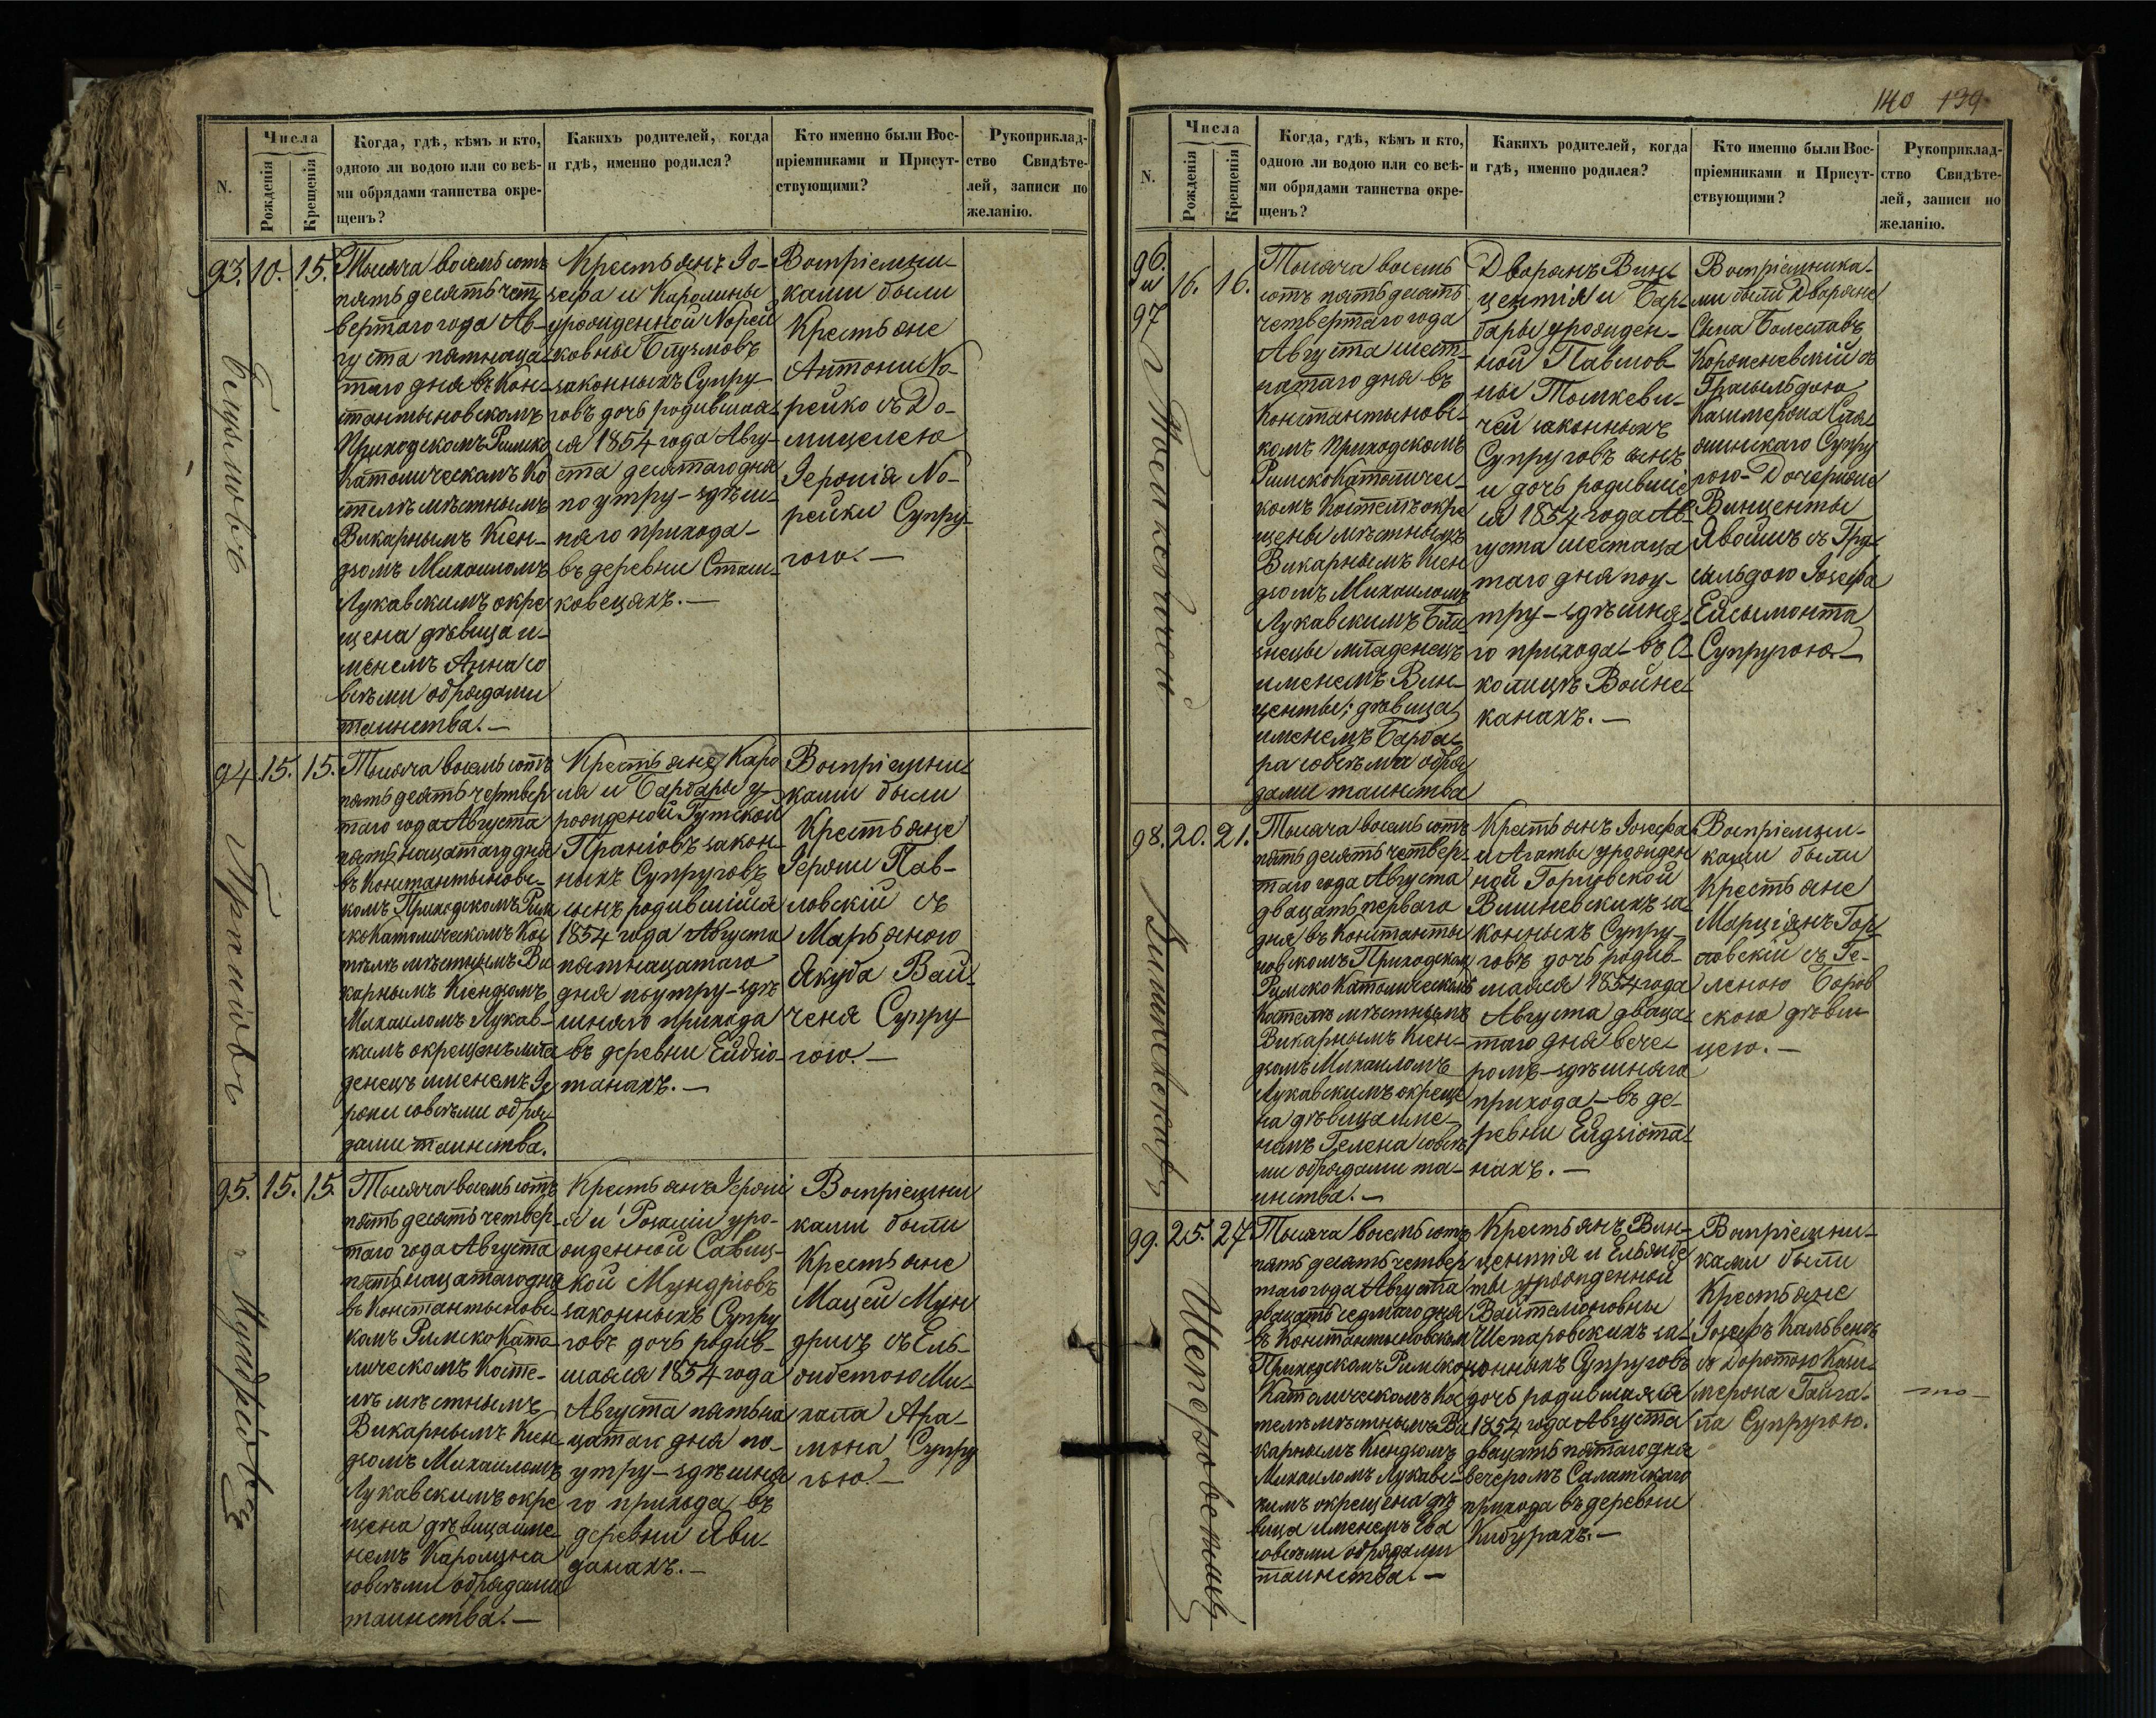 140 139
N.
Числа
Рожденія
Крещенія
Когда, гдѣ, кѣмъ и кто,
одною ли водою или со всѣ-
ми обрядами таинства окре-
щенъ?
Какихъ родителей, когда
и гдѣ, именно родился?
Кто именно были Вос-
пріемниками и Присут-
ствующими?
Рукоприклад-
ство Свидѣте-
лей, записи по
желанію.
93. 10. 15.
Тысяча восемь сотъ
пять десять чет-
вертаго года Ав-
густа пятнаца-
таго дня въ Кон-
стантыновскомъ
Приходскомъ Римско
Католическомъ Ко
стелѣ мѣстнымъ
Викарнымъ Ксен-
дзомъ Михаиломъ
Лукавскимъ окре
щена дѣвица и-
менемъ Анна со
всѣми обрядами
таинства.—
Крестьянъ Іо-
зефа и Каролины
урожденной Норей
ковны
законныхъ Супру-
говъ дочь родившая-
ся 1854 года Авгу-
ста десятаго дня
по утру - здѣш-
няго прихода -
въ деревни Сташ-
ковецяхъ.—
Воспріемни-
ками были
Крестьяне
Антони Но-
рейко съ До-
мицелею
Іеронія Но-
рейки Супру-
гою.—
94. 15. 15.
Праніовъ
Тысяча восемь сотъ
пять десять четвер
таго года Августа
пять нацатаго дня
въ Константыновс-
комъ Приходскомъ Рим
ско Католическомъ Кос
телѣ мѣстнымъ Ви
карнымъ Ксендзомъ
Михаиломъ Лукав-
скимъ окрещенъ мла
денецъ именемъ Іе
рони совсѣми обря-
дами таинства.
Крестьяне Каро
ля и Барбары у-
рожденой Гутской
Праніовъ закон-
ныхъ Супруговъ
сынъ родившійся
1854 года Августа
пятнацатаго
дня поутру - здѣ
шняго прихода
въ деревни Ейдзіо-
танахъ.—
Воспріемни-
ками были
Крестьяне
Іерони Пав-
ловскій съ
Марьяною
Якуба Вай-
ченя Супру-
гою.—
95. 15. 15.
Мундріовъ
Тысяча восемь сотъ
пять десять четвер-
таго года Августа
пять нацатаго дня
въ Константыновс-
комъ Римско Като-
лическомъ Косте-
лѣ мѣстнымъ
Викарнымъ Ксен-
дзомъ Михаиломъ
Лукавскимъ окре
щена дѣвица име-
немъ Каролина
совсѣми обрядами
таинства.—
Крестьянъ Іерони
я и Розаліи уро-
жденной Савиц-
кой Мундріовъ
законныхъ Супру
говъ дочь родив-
шаяся 1854 года
Августа пятьна
цатаго дня по-
утру - здѣшня
го прихода въ
деревни Яви-
данахъ.—
Воспріемни
ками были
Крестьяне
Мацей Мун
дрисъ съ Ель-
жбетою Ми-
хала Ара-
мона Супру
гою.—
N.
Числа
Рожденія
Крещенія
Когда, гдѣ, кѣмъ и кто,
одною ли водою или со всѣ-
ми обрядами таинства окре-
щенъ?
Какихъ родителей, когда
и гдѣ, именно родился?
Кто именно были Вос-
пріемниками и Присут-
ствующими?
Рукоприклад-
ство Свидѣте-
лей, записи по
желанію.
96. и 97 16. 16.
Томкевичей
Тысяча восемь
сотъ пять десять
четвертаго года
Августа шест-
натаго дня въ
Константыновс-
комъ Приходскомъ
Римско Католичес-
комъ Костелѣ окре
щены мѣстнымъ
Викарнымъ Ксен
дзомъ Михаиломъ
Лукавскимъ Бли-
знецы младенецъ
именемъ Вин-
центы; дѣвица
именемъ Барба-
ра совсѣми обря
дами таинства
Дворянъ Вин-
центія и Бар-
бары урожден-
ной Павлов-
ны Томкеви-
чей законныхъ
Супруговъ сынъ
и дочь родившіе
ся 1854 года Ав-
густа шестаца
таго дня поу-
тру - здѣшня-
го прихода въ О-
колицѣ Войне-
канахъ.—
Воспріемника-
ми были Дворяне
Болеславъ
съ
Супру
гою
Винценты
Явойшъ съ
Іозефа
Ейсымонта
Супругою.—
98. 20. 21.
Вишневскихъ
Тысяча восемь сотъ
пять десять четвер-
таго года Августа
двацать перваго
дня въ Константы
новскомъ Приходском
Римско Католическомъ
Костелѣ мѣстнымъ
Викарнымъ Ксен-
дзомъ Михаиломъ
Лукавскимъ окреще
на дѣвица име-
немъ Гелена совсѣ
ми обрядами та-
инства.—
Крестьянъ Іозефа
и Агаты урожден
ной Горжевской
Вишневскихъ за
конныхъ Супру-
говъ дочь родив-
шаяся 1854 года
Августа дваца-
таго дня вече-
ромъ - здѣшняго
прихода - въ де-
ревни Ейдзіота-
нахъ.—
Воспріемни-
ками были
Крестьяне
Марціянъ Гор-
жовскій съ Ге-
леною Боров
скою дѣви-
цею.—
99. 25. 27
Шепоровскихъ
Тысяча восемь сотъ
пять десять четвер
таго года Августа
двацать седмаго дня
въ Константыновском
Приходскомъ Римско
Католическомъ Кос
телѣ мѣстнымъ Ви
карнымъ Ксендзомъ
Михаиломъ Лукавс-
кимъ окрещена дѣ
вица именемъ Ева
совсѣми обрядами
таинства.—
Крестьянъ Вин-
центія и Ельжбе
ты урожденной
Шепаровскихъ за-
конныхъ Супруговъ
дочь родившаяся
1854 года Августа
двацать пятаго дня
вечеромъ Салатскаго
прихода въ деревни
Кибурахъ.—
Воспріемни-
ками были
Крестьяне
Іозефъ Кальвенъ
съ Доротою Кази-
мерона Гайга-
ла Супругою.